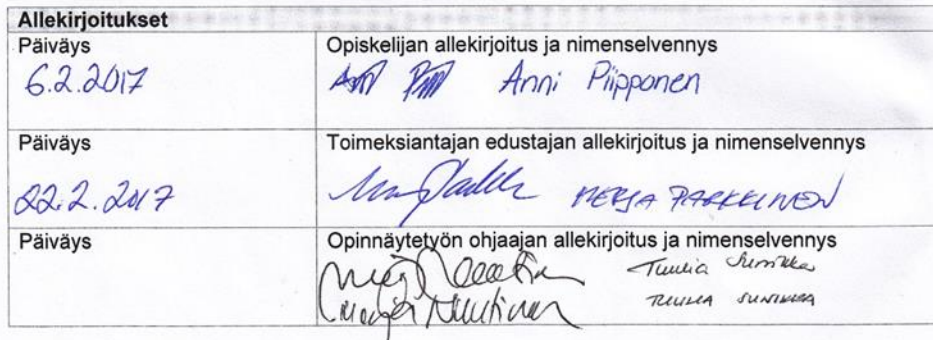 Allekirjoitukset
Päiväys
Opiskelijan allekirjoitus ja nimenselvennys
6.2.2017
Anni Piipponen
Päiväys
Toimeksiantajan edustajan allekirjoitus ja nimenselvennys
22.2.2017
MERJA PARKKINEN
Päiväys
Opinnäytetyön ohjaajan allekirjoitus ja nimenselvennys
Tuulia Sunikka
Nuutinen
TUULIA SUNIKKA